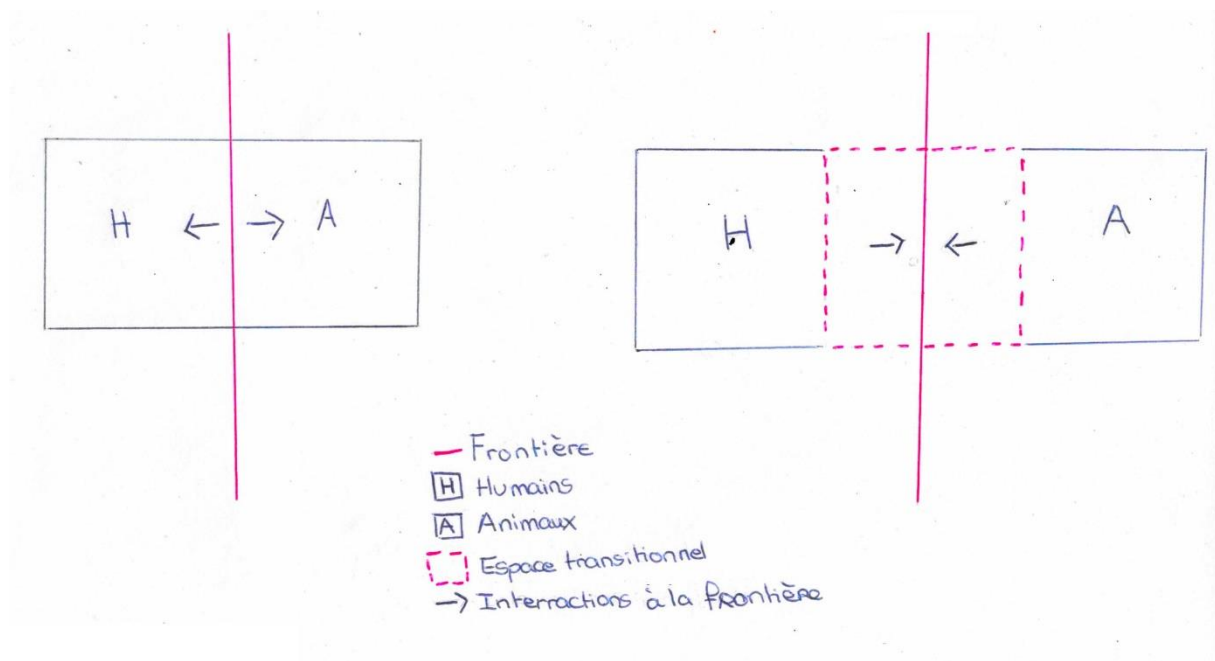 H ← → A
H → ← A
Frontière
H Humains
A Animaux
Espace transitionnel
→ Interractions à la frontière